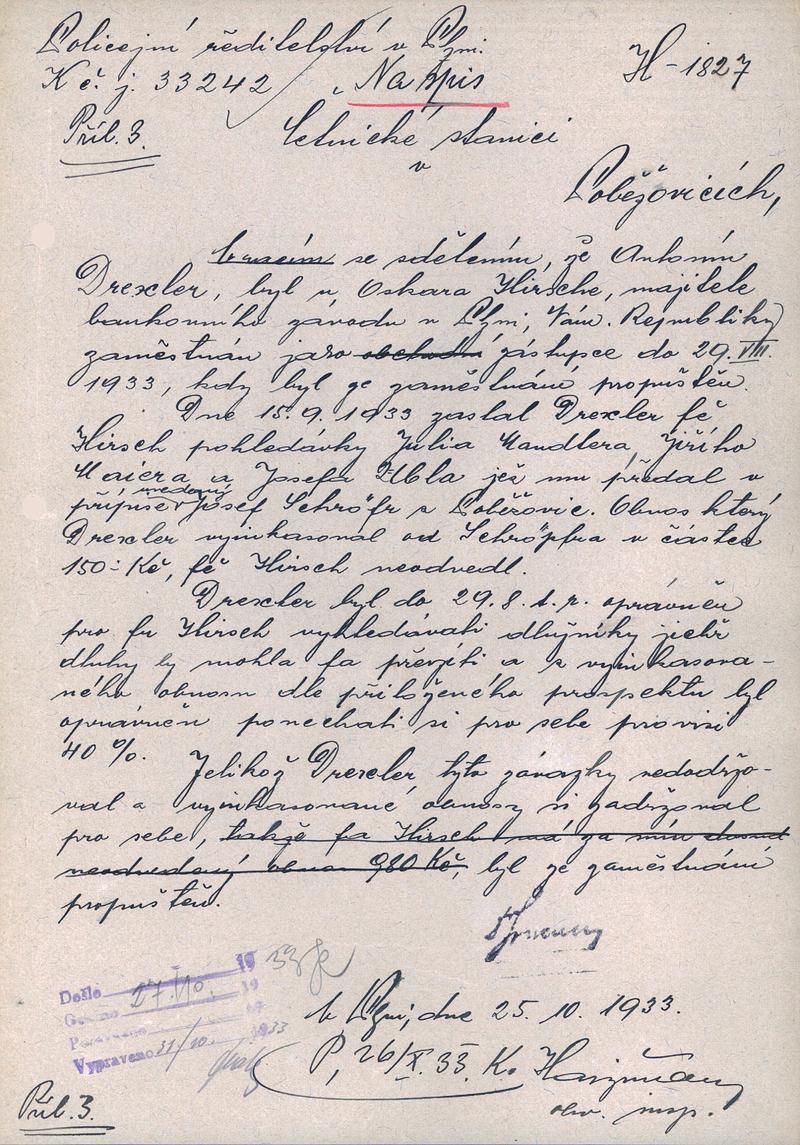 Policejní ředitelství v Plzni.
K č. j. 33242
H-1827
Na spis
Příl. 3.
četnické stanici
v
Poběžovicích,
vracím se sdělením, že Antonín
Drexler, byl u Oskara Hirsche, majitele
bankovního závodu v Plzni, Nám. Republiky
zaměstnán jako obchodní zástupce do 29. VIII.
1933, kdy byl ze zaměstnání propuštěn.
Dne 15. 9. 1933 zaslal Drexler fě
Hirsch pohledávky Julia Mandlera, Jiřího
Maiera a Josefa Zibla jež mu předal v
přípise uvedený Josef Schröpfr z Poběžovic. Obnos který
Drexler vyinkasoval od Schröpfra v částce
150.- Kč, fě Hirsch neodvedl.
Drexler byl do 29. 8. t. r. oprávněn
pro fu Hirsch vyhledávati dlužníky jichž
dluhy by mohla fa převzíti a z vyinkasova-
ného obnosu dle přiloženého prospektu byl
oprávněn ponechati si pro sebe provisi
40 %.
Jelikož Drexler tyto závazky nedodržo-
val a vyinkasované obnosy si zadržoval
pro sebe, takže fa Hirsch má za ním dosud
neodvedený obnos 980 Kč, byl ze zaměstnání
propuštěn.
Došlo 27./10. 1933
Vypraveno 31/10 1933
V Plzni, dne 25. 10. 1933.
P, 26/X. 33. Ko
obv. insp.
Příl. 3.